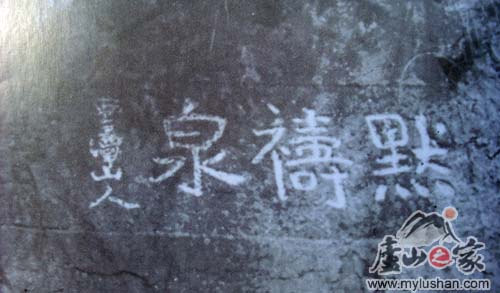 黙禱泉
山人
庐山之家
www.mylushan.com